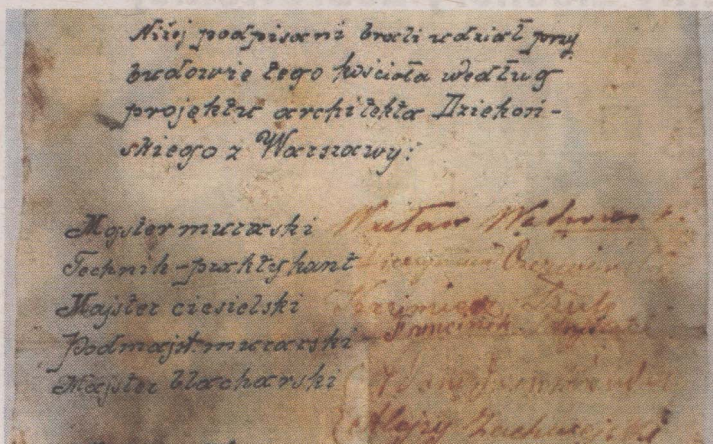 Niżej podpisani brali udział przy
budowie tego kościoła według
projektu architekta Dziekoń-
skiego z Warszawy:
Majster murarski Wacław
Technik-praktykant
Majster ciesielski Kazimierz
Podmajst. murarski - Franciszek
Majster blacharski
Alojzy